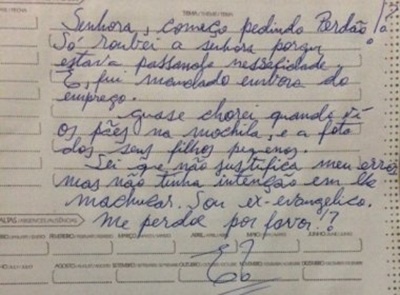 TEMA / THEME / TEMA
Senhora, começo pedindo Perdão!
Só roubei a senhora porque
estava passando nessesidade.
E, fui mandado embora do
emprego.
quase chorei quando vi
os pães na mochila, e a foto
dos seus filhos pequenos.
Sei que não justifica meu erro
mas não tinha intenção em lhe
machucar. Sou ex-evangelico.
me perdoe por favor!?